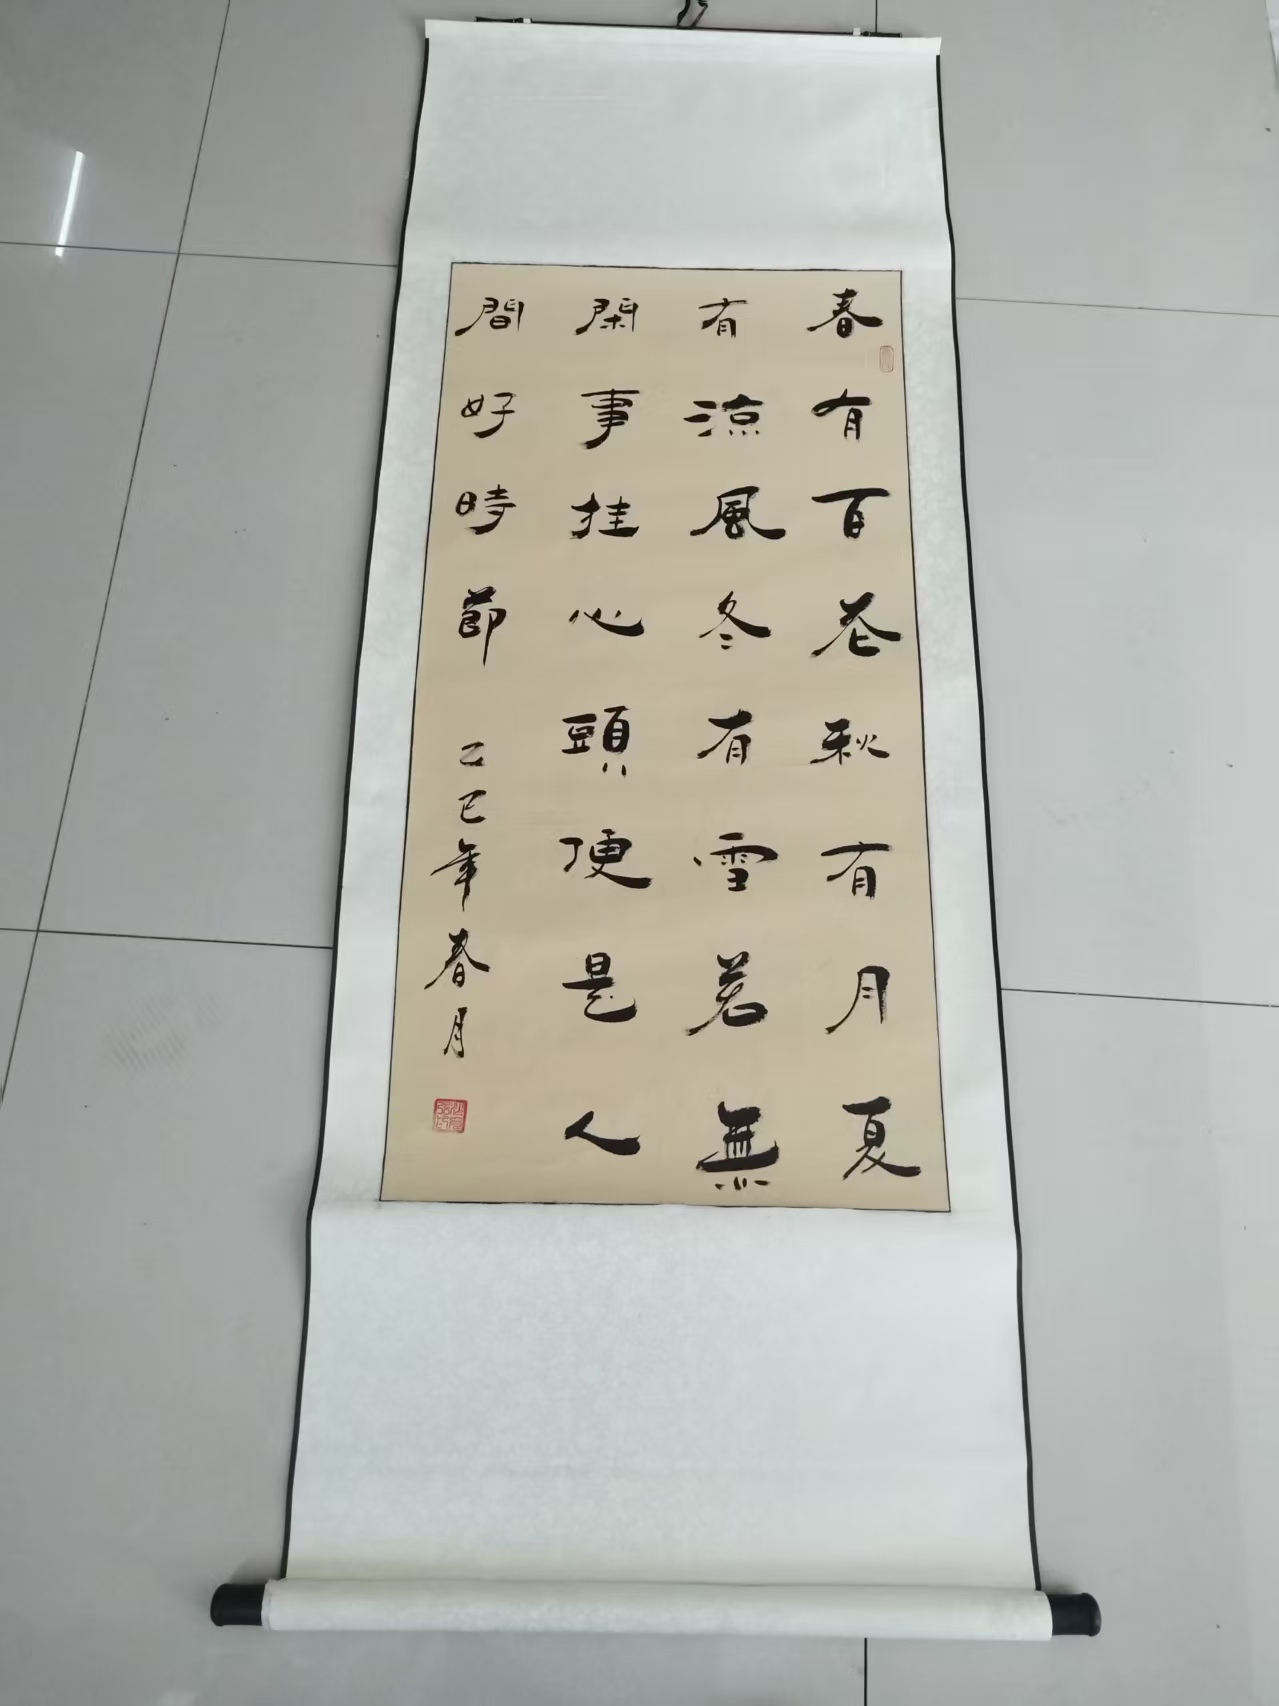 春有百花秋有月夏
有涼風冬有雪若無
閑事挂心頭便是人
間好時節
乙巳年春月